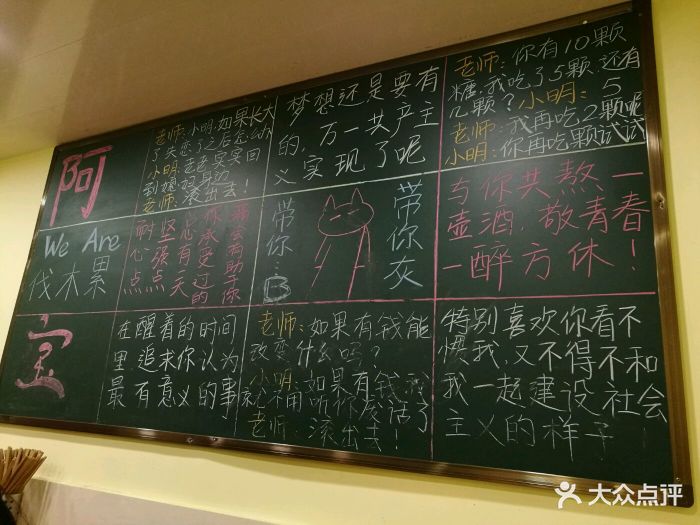 阿
We Are
伐木累
宝
老师:小明:如果长大
了失恋了之后怎么办
小明:走走哭哭回
到媳妇身边
老师:滚出去!
梦想还是要有
的,万一共产主
义实现了呢
老师:你有10颗
糖,我吃了5颗,还有
几颗?小明:5
老师:我再吃2颗呢
小明:你再吃颗试试
耐心点
坚强点
总有一天
你承受过的
痛会有助于你
带你…
B
带你灰
与你共熬一
壶酒,敬青春
一醉方休!
在醒着的时间
里,追求你认为
最有意义的事
老师:如果有钱能
改变什么吗?
小明:如果有钱我
就不用听你废话了
老师:滚出去!
特别喜欢你看不
惯我,又不得不和
我一起建设社会
主义的样子
大众点评